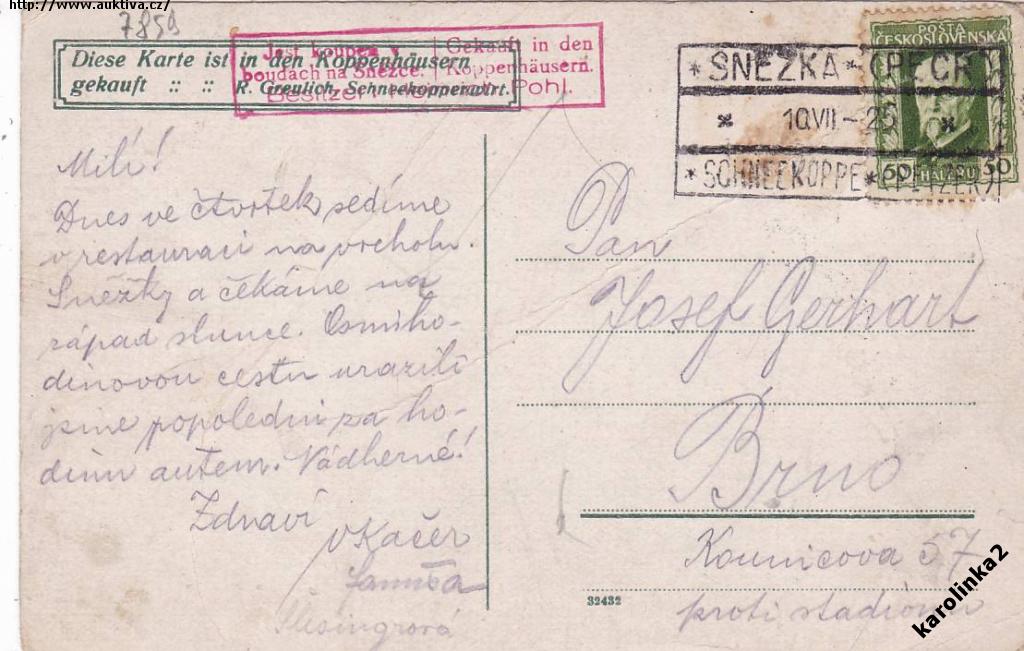 http://www.auktiva.cz/
7859
Diese Karte ist in den Koppenhäusern
gekauft :: :: R. Greulich, Schneekoppenwirt.
Jest koupen v
boudach na Sněžce.
Gekauft in den
Koppenhäusern.
Besitzer Pohl.
POŠTA
ČESKOSLOVENSKÁ
50 HALÉŘŮ 50
* SNĚŽKA - (PECR)
* 10.VII.-25 *
* SCHNEEKOPPE * (PETZER)
Milí!
Dnes ve čtvrtek sedíme
v restauraci na vrcholu
Sněžky a čekáme na
západ slunce. Osmiho-
dinovou cestu urazili
jsme popoledni za ho-
dinu autem. Nádherné!
Zdraví
VKačer
Pan
Josef Gerhart
Brno
Kounicova 57
proti stadionu
32432
karolinka2